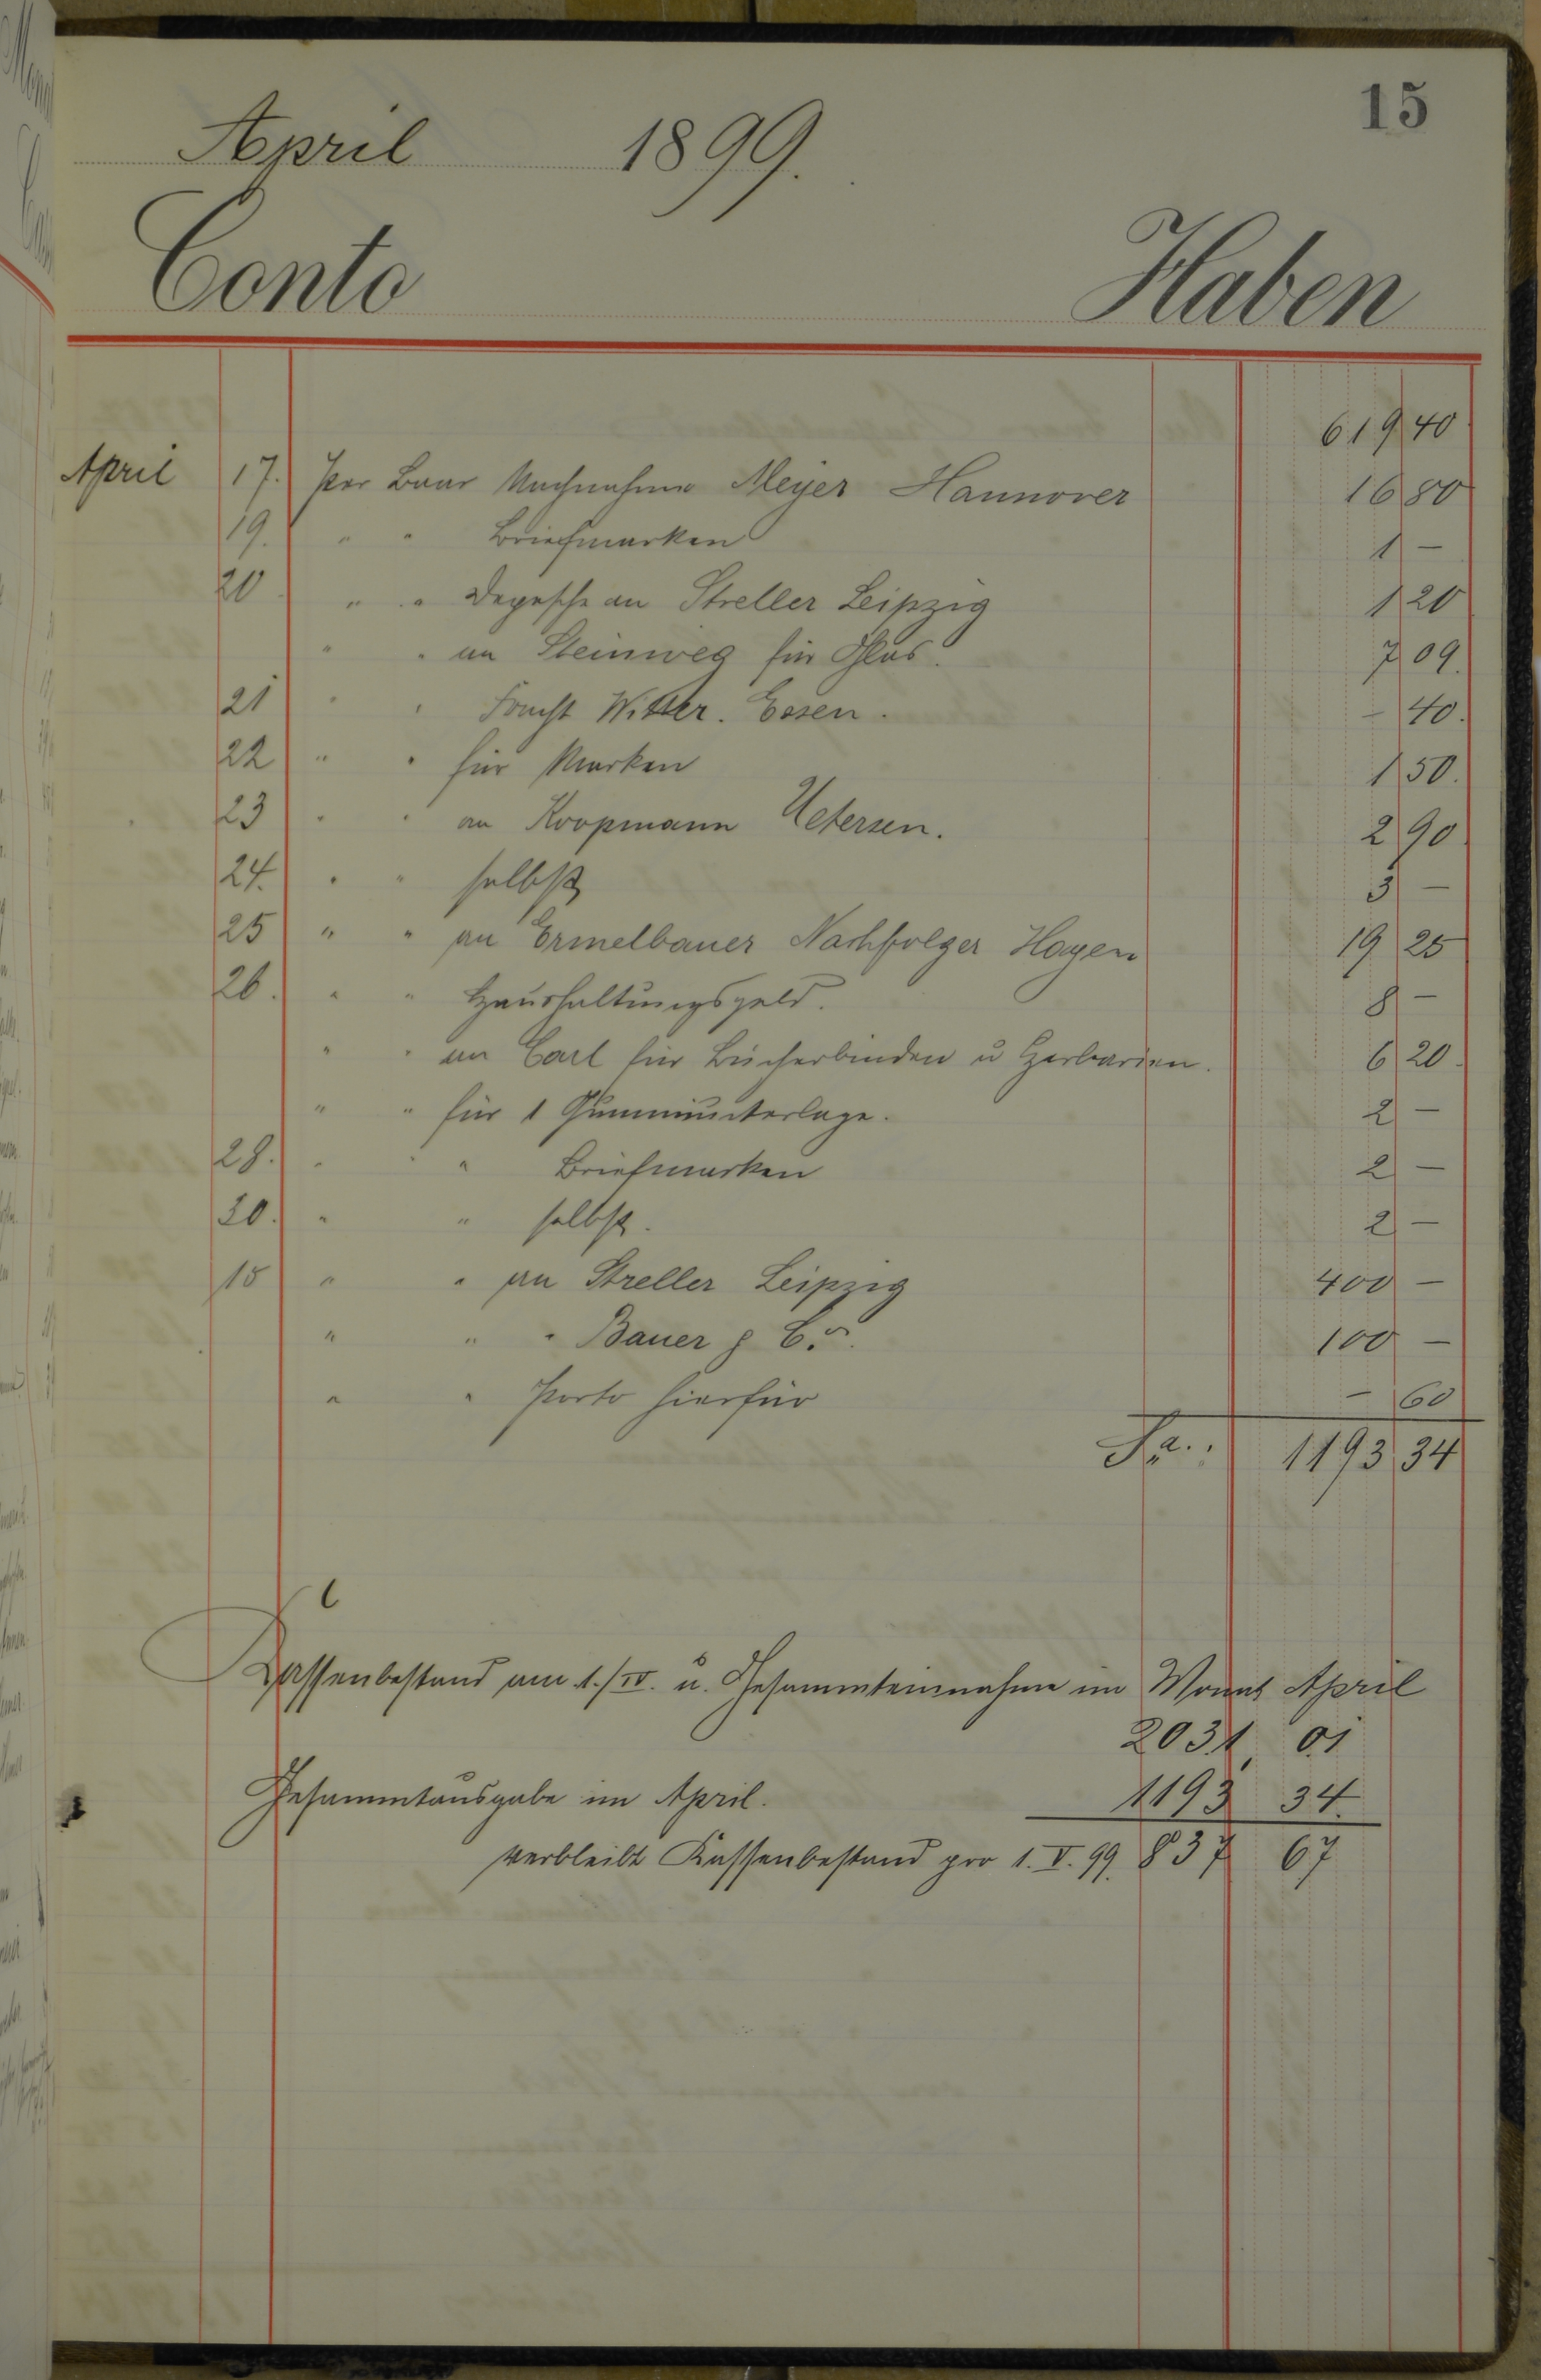 15
April 1899.
Conto Haben
619 40
April 17. Per Baar Nachnahme Meyer Hannover 16 80
19. " " Briefmarken 1 –
20. " " Depesche an Streller Leipzig 1 20
" " an Steinweg für Glas. 7 09.
21 " " Fracht Witter. Essen. – 40.
22 " " für Marken 1 50.
23 " " an Koopmann Uetersen. 2 90
24. " " selbst 3 –
25 " " an Ermelbauer Nachfolger Hagen 19 25
26. " " Haushaltungsgeld. 8 –
" " an Carl für Bücherbinden u Herbarien. 6 20.
" " für 1 Gummiunterlage. 2 –
28. " " Briefmarken 2 –
30. " " selbst. 2 –
15 " " an Streller Leipzig 400 –
" " " Bauer & Co. 100 –
" " Porto hierfür – 60
Sa.: 1193 34
Kassenbestand am 1./IV. u. Gesammteinnahme im Monat April
2031 01
Gesammtausgabe im April. 1193 34.
verbleibt Kassenbestand pro 1. V. 99. 837 67